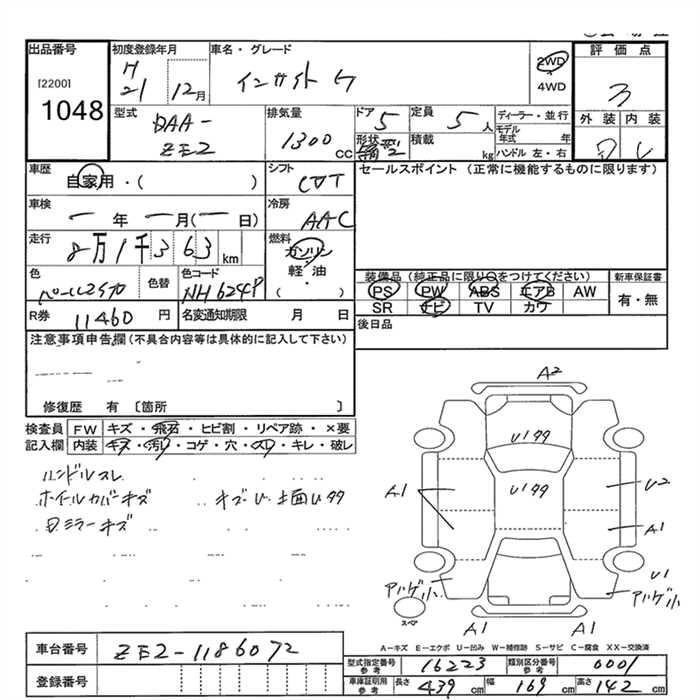 出品番号 初度登録年月 車名・グレード 2WD 評価点
[2200] H 21 12月 インサイト 4WD 3
1048
型式 排気量 ドア 定員 ディーラー・並行 外装 内装
DAA- 1300 CC 5 5人 モデル年式 年
ZE2 形状 積載 kg ハンドル 左・右
車歴 シフト セールスポイント (正常に機能するものに限ります)
自家用・( ) CVT
車検 冷房
年 月( 日) AAC
走行 燃料
8万1千363km ガソリン
軽・油
( )
色 色替 色コード
パール NH624P
装備品 (純正品に限り○をつけてください) 新車保証書
PS PW ABS エアB AW 有・無
SR ナビ TV カワ
R券 11460 円 名変通知期限 月 日 後日品
注意事項申告欄 (不具合内容等は具体的に記入して下さい)
修復歴 有 〔箇所 〕
検査員 FW キズ・飛石・ヒビ割・リペア跡・×要
記入欄 内装 キズ・汚れ・コゲ・穴・スレ・キレ・破レ
ハンドルスレ
ホイールカバーキズ
ミラーキズ
A2
U
U
A1
U2
A1
U1
スペア
A1 A1
A-キズ E-エクボ U-凹み W-補修跡 S-サビ C-腐食 XX-交換済
車台番号 ZE2-1186072
型式指定番号参考 16223 類別区分番号参考 0001
登録番号
車庫証明用参考 長さ 439cm 幅 169cm 高さ 142cm